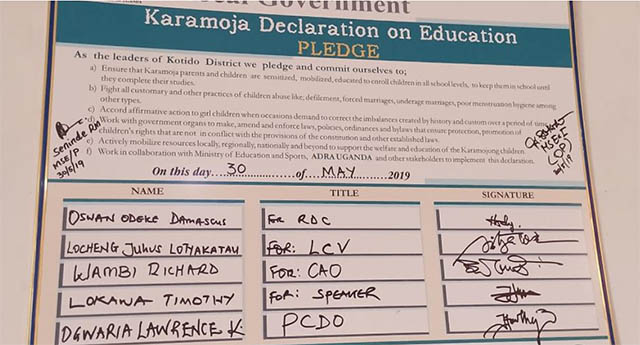 Local Government
Karamoja Declaration on Education
PLEDGE
As the leaders of Kotido District we pledge and commit ourselves to;
a) Ensure that Karamoja parents and children are sensitized, mobilized, educated to enroll children in all school levels, to keep them in school until
they complete their studies.
b) Fight all customary and other practices of children abuse like; defilement, forced marriages, underage marriages, poor menstruation hygiene among
other types.
c) Accord affirmative action to girl children when occasions demand to correct the imbalances created by history and custom over a period of time.
d) Work with government organs to make, amend and enforce laws, policies, ordinances and bylaws that ensure protection, promotion of
children's rights that are not in conflict with the provisions of the constitution and other established laws.
e) Actively mobilize resources locally, regionally, nationally and beyond to support the welfare and education of the Karamojong children.
f) Work in collaboration with Ministry of Education and Sports, ADRA UGANDA and other stakeholders to implement this declaration.
30/5/19
On this day....30..................of....MAY...........2019
NAME TITLE SIGNATURE
OSWAN ODEKE DAMASCUS For RDC
LOCHENG JULIUS LOTIAKATAU FOR: LCV
WAMBI RICHARD FOR: CAO
LOKAWA TIMOTHY FOR: SPEAKER
DGWARIA LAWRENCE K. PCDO